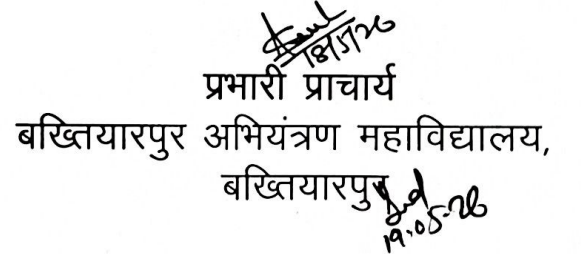 18/5/26
प्रभारी प्राचार्य
बख्तियारपुर अभियंत्रण महाविद्यालय,
बख्तियारपुर
19.05.26